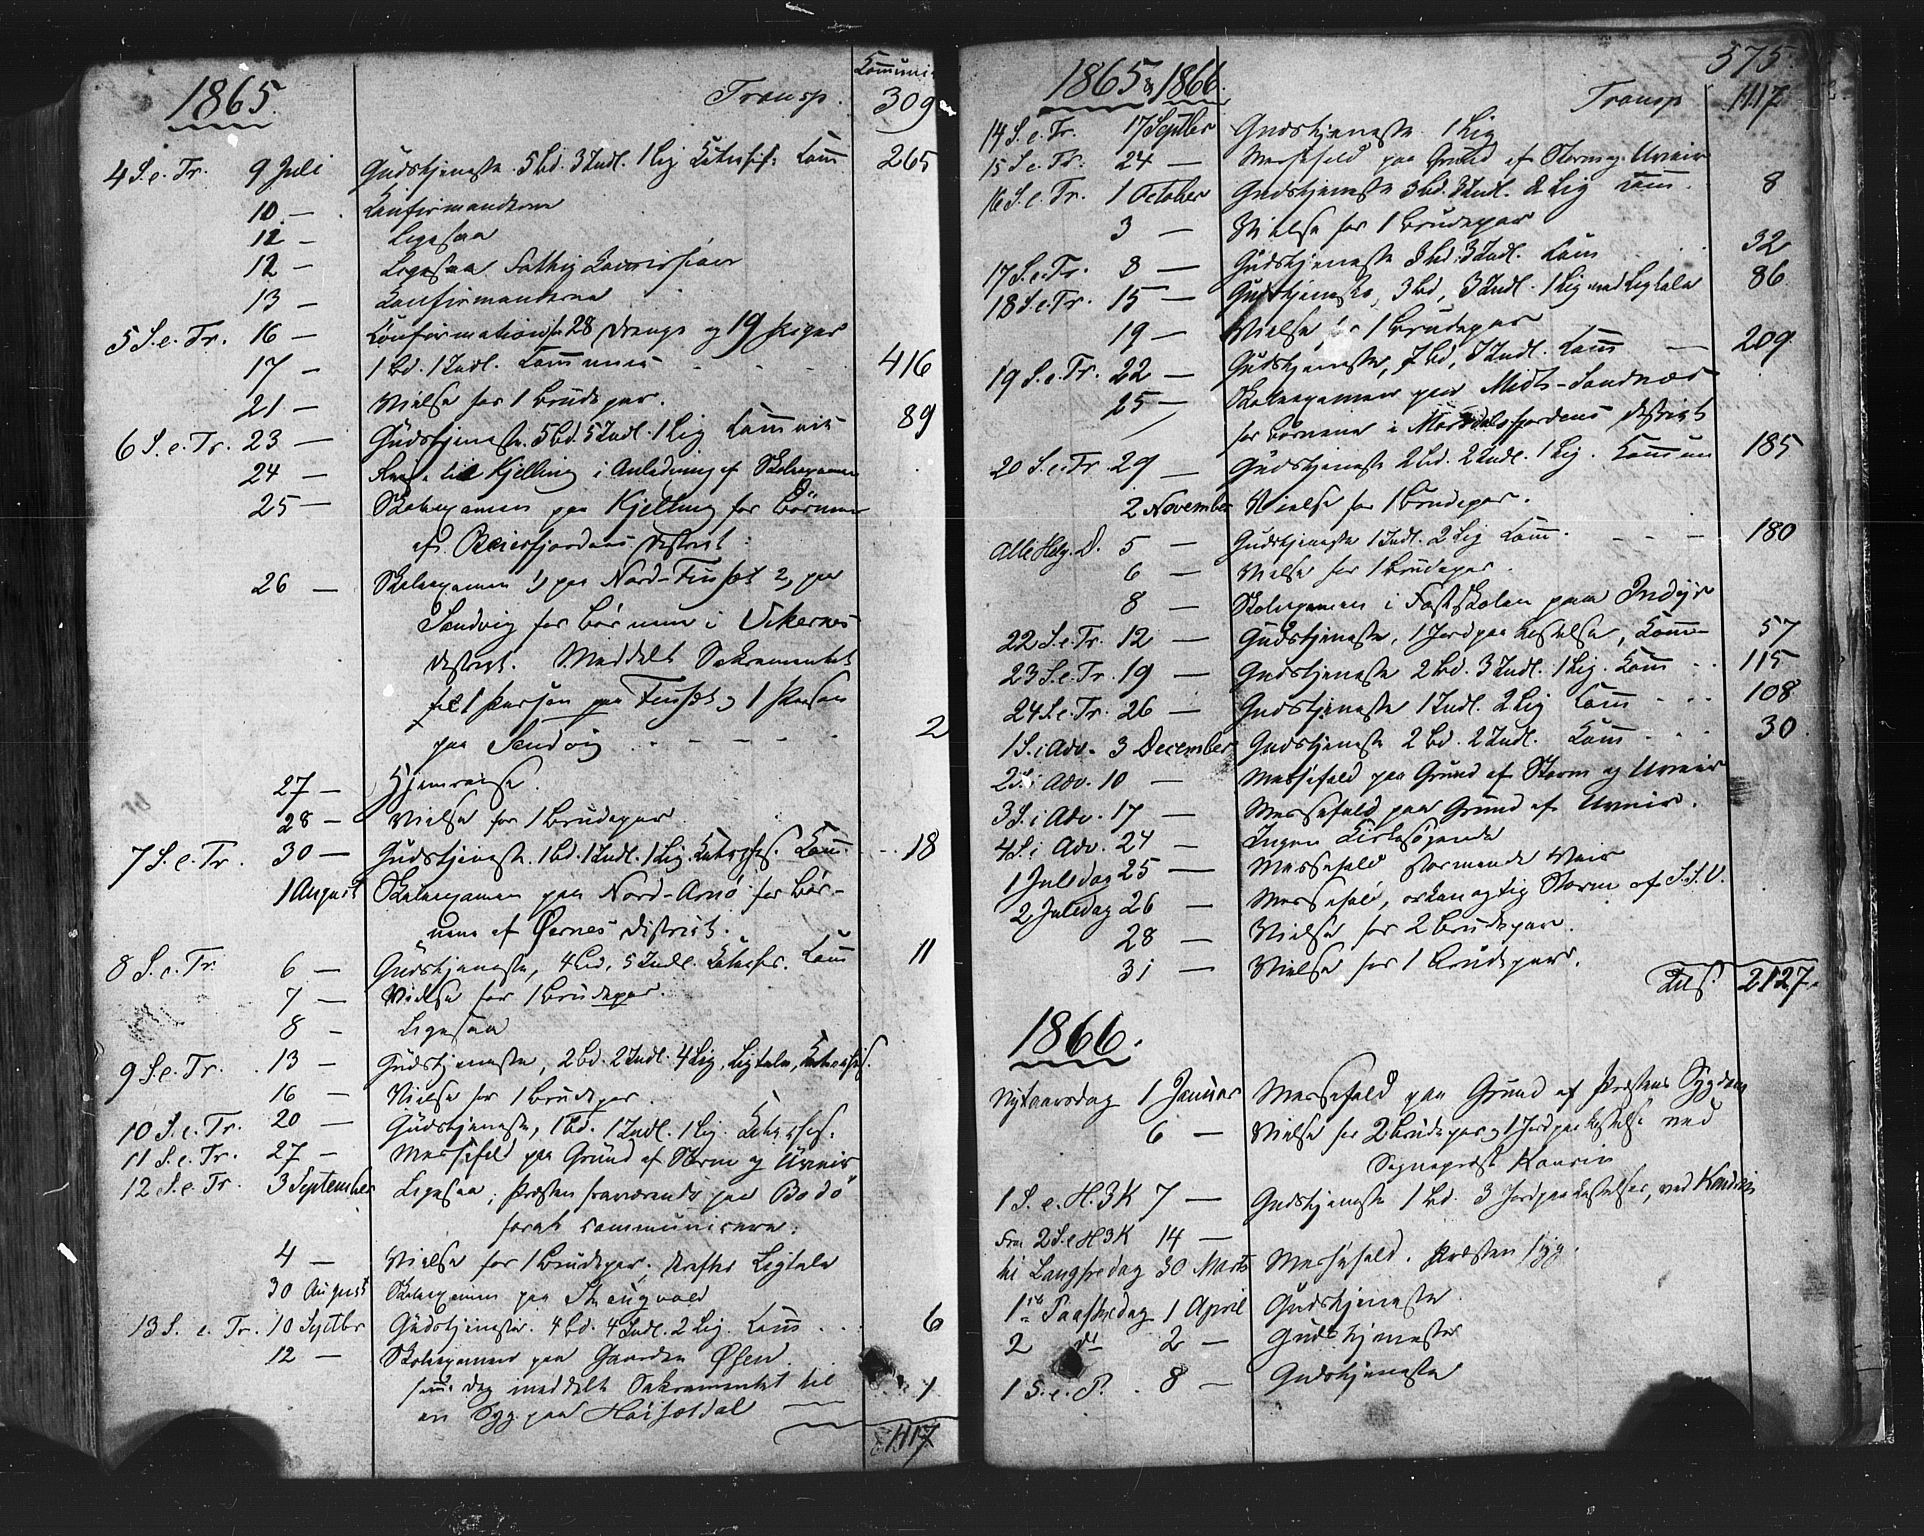 Commun.
1865.
Transp. 309
4 S. e. Tr. 9 Juli Gudstjeneste. 5 bd. 3 Indl. 1 Lig Kateches. Com 265
10 — Confirmanderne
12 — Ligesaa
12 — Ligesaa Fattig Commission
13 — Confirmanderne
5 S. e. Tr. 16 — Confirmation 28 Drenge og 19 Piger
17 — 1 bd. 1 Indl. Communic 416
21 — Vielse for 1 Brudepar.
6 S. e. Tr. 23 — Gudstjeneste. 5 bd. 5 Indl. 1 Lig Communic 89
24 — Reise til Kjelling i Anledning af Skoleexamen
25 — Skoleexamen paa Kjelling for Börnene
af Beierfjordens District.
26 — Skoleexamen 1) paa Nord-Finset 2, paa
Sandvig for Börnene i Vikernes
District. Meddelt Sakramentet
til 1 Person paa Finset og 1 Person
paa Sandvig 2
27 — Hjemreise.
28 — Vielse for 1 Brudepar
7 S. e. Tr. 30 — Gudstjeneste. 1 bd. 1 Indl. 1 Lig. Kateches. Com. 18
1 August Skoleexamen paa Nord-Arnö for Bör-
nene af Ørnes District.
8 S. e. Tr. 6 — Gudstjeneste, 4 bd. 5 Indl. Kateches. Com 11
7 — Vielse for 1 Brudepar.
8 — Ligesaa
9 S. e. Tr. 13 — Gudstjeneste, 2 bd. 2 Indl. 4 Lig, Ligtale, Kateches.
16 — Vielse for 1 Brudepar.
10 S. e. Tr. 20 — Gudstjeneste, 1 bd. 1 Indl. 1 Lig. Kateches.
11 S. e. Tr. 27 — Messefald paa Grund af Storm og Uveir
12 S. e. Tr. 3 September Ligesaa, Præsten fraværende paa Bodö
forat communicere.
4 — Vielse for 1 Brudepar. Ligtale
30 August Skoleexamen paa
13 S. e. Tr. 10 Septbr Gudstjeneste. 4 bd. 4 Indl. 2 Lig. Com 6
12 — Skoleexamen paa Gaarden Øsen.
samme Dag meddelt Sakramentet til
en Syg paa 1
1117
575.
1865 & 1866.
Transp 1117
14 S. e. Tr. 17 Septber Gudstjeneste 1 Lig
15 S. e. Tr. 24 — Messefald paa Grund af Storm og Uveir
16 S. e. Tr. 1 October Gudstjeneste 3 bd. 3 Indl. 2 Lig Com. 8
3 — Vielse for 1 Brudepar
17 S. e. Tr. 8 — Gudstjeneste 3 bd. 3 Indl. Com 32
18 S. e. Tr. 15 — Gudstjeneste, 3 bd, 3 Indl. 1 Lig med Ligtale 86
19 — Vielse for 1 Brudepar
19 S. e. Tr. 22 — Gudstjeneste, 7 bd, 7 Indl. Com — 209
25 — Skoleexamen paa Midt-Sandnæs
for Börnene i Morsdalsfjordens District
20 S. e. Tr 29 — Gudstjeneste 2 bd. 2 Indl. 1 Lig. Commun 185
2 November Vielse for 1 Brudepar.
Alle Helg. D. 5 — Gudstjeneste 1 Indl. 2 Lig Com. 180
6 — Vielse for 1 Brudepar.
8 — Skoleexamen i Fastskolen paa Indyr
22 S. e. Tr. 12 — Gudstjeneste, 1 Jordpaakastelse, Com 57
23 S. e. Tr. 19 — Gudstjeneste 2 bd. 3 Indl. 1 Lig. Com 115
24 S. e. Tr. 26 — Gudstjeneste 1 Indl. 2 Lig Com 108
1 S. i Adv. 3 December Gudstjeneste 2 bd. 2 Indl. Com 30
2 S. i Adv. 10 — Messefald paa Grund af Storm og Uveir
3 S. i Adv. 17 — Messefald paa Grund af Uveir.
4 S. i Adv. 24 — Ingen Kirkesögende
1 Juledag 25 — Messefald stormende Veir
2 Juledag 26 — Messefald, orkanagtig Storm af S.S.V.
28 — Vielse for 2 Brudepar.
31 — Vielse for 1 Brudepar.
2127
1866.
Nytaarsdag 1 Januar Messefald paa Grund af Præstens Sygdom
6 — Vielse for 2 Brudepar og 1 Jordpaakastelse ved
Sognepræst
1 S. e. H. 3 K 7 — Gudstjeneste 1 bd. 3 Jordpaakastelser, ved
Fra 2 S. e H 3 K 14 —
til Langfredag 30 Marts Messefald. Præsten syg.
1ste Paaskedag 1 April Gudstjeneste.
2 do 2 — Gudstjeneste
1 S. e. P. 8 — Gudstjeneste